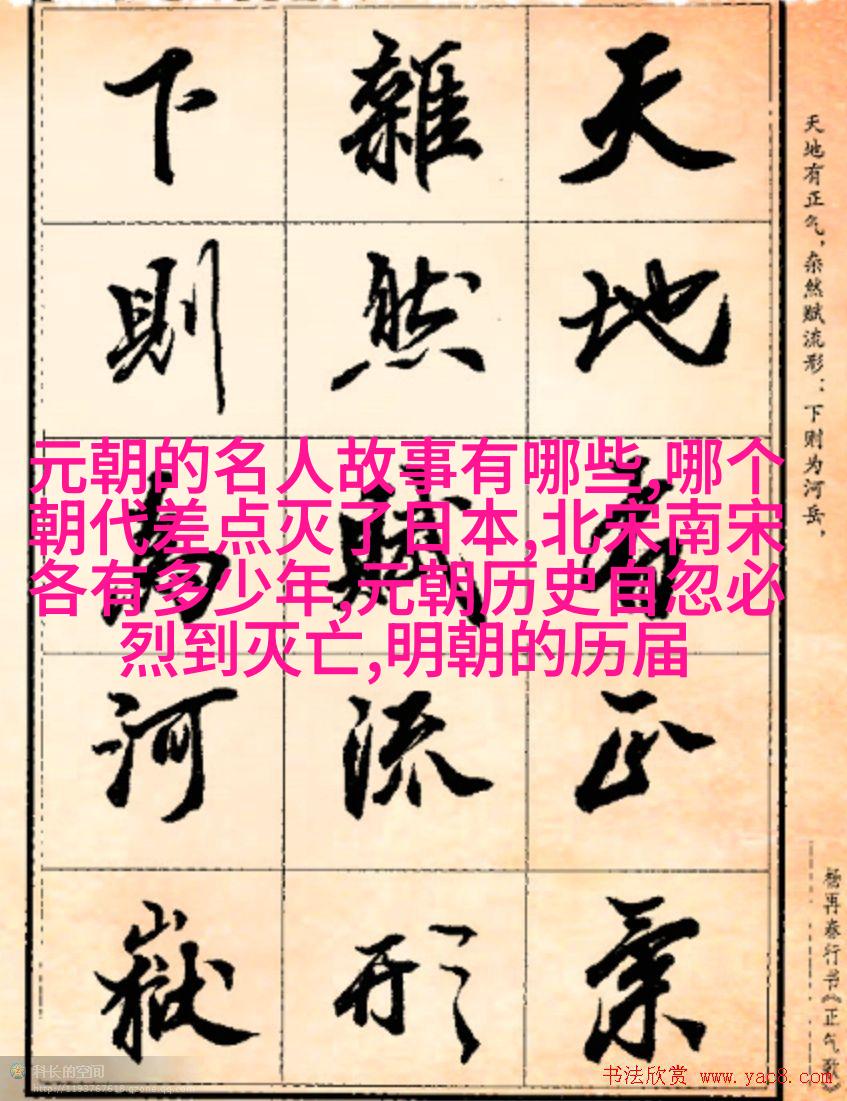 天地有正气，杂然赋流形；下则为河岳，
杨再春行书《正气歌》
天地有正氣
雜然賦流形
下則為河嶽
元朝的名人故事有哪些,哪个
朝代差点灭了日本,北宋南宋
各有多少年,元朝历史自忽必
烈到灭亡,明朝的历届
科长的空间
http://1193767618.qzone.qq.com
书法欣赏 www.yac8.com